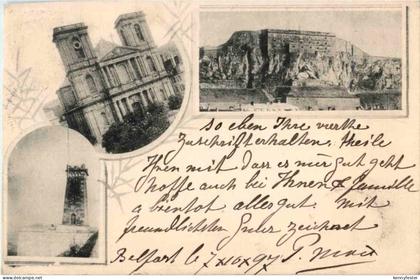 so eben Ihre werthe
Zuschrift erhalten. theile
Ihnen mit dass es mir gut geht
hoffe auch bei Ihnen & famille
a bientot alles gut. Mit
freundlichsten Grüßen zeichnet
Belfort le 7 x 97
www.delcampe.net
kennyfestus